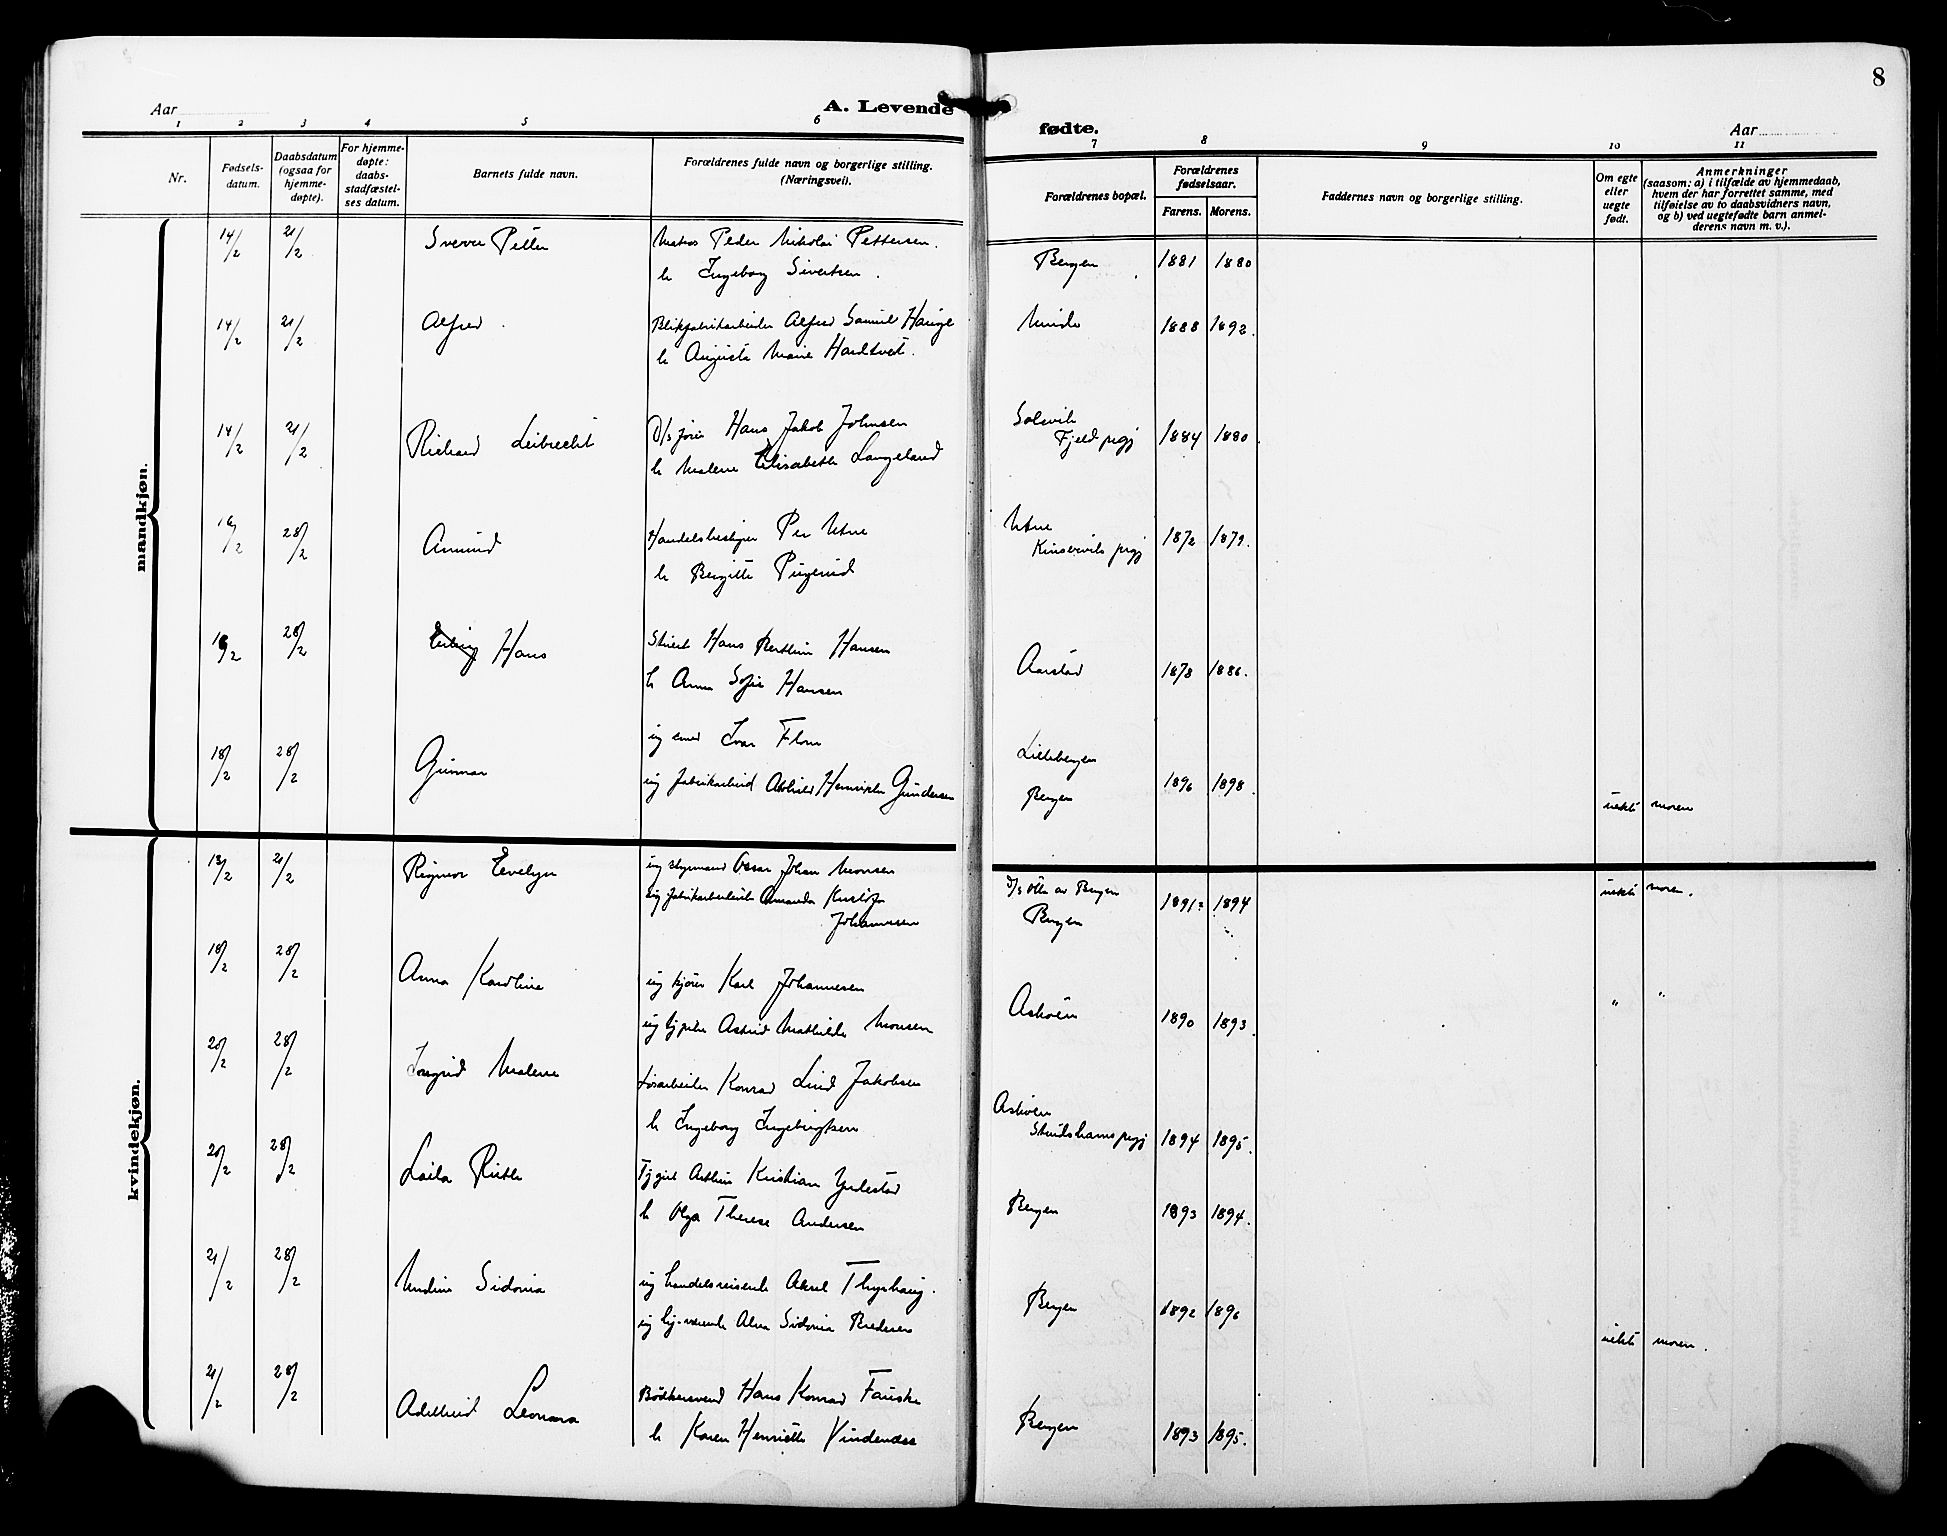 8
Aar
A. Levende
fødte.
Aar
1 2 3 4 5 6 7 8 9 10 11
Nr.
Fødsels-
datum.
Daabsdatum
(ogsaa for
hjemme-
døpte).
For hjemme-
døpte:
daabs-
stadfæstel-
ses datum.
Barnets fulde navn.
Forældrenes fulde navn og borgerlige stilling.
(Næringsvei).
Forældrenes bopæl.
Forældrenes
fødselsaar.
Farens. Morens.
Faddernes navn og borgerlige stilling.
Om egte
eller
uegte
født.
Anmerkninger
(saasom: a) i tilfælde av hjemmedaab,
hvem der har forrettet samme, med
tilføielse av to daabsvidners navn,
og b) ved uegtefødte barn anmel-
derens navn m. v.).
mandkjøn.
14/2 21/2 Sverre Petter Matros Peder Nikolai Pettersen. Bergen 1881 1880
h Ingeborg Sivertsen.
14/2 21/2 Alfred. Blikfabrikarbeider Alfred Samuel Hauge Minde 1888 1892.
h Augusta Marie Hardtveit.
14/2 21/2 Richard Leibrecht D/s fører Hans Jakob Johnsen Solsvik
Fjeld prgj 1884 1880.
h Malene Elisabeth Langeland
16/2 28/2 Amund Handelsbestyrer Per Utne Utne
Kinservik prgj 1872 1879.
h Bergitte
16/2 28/2 Hans Stuert Hans Berthin Hansen Aarstad 1878 1886.
h Anna Sofie Hansen
18/2 28/2 Gunnar ug smed Ivar Flom Lillebergen 1896 1898.
ug fabrikarbeid Henrikke Gundersen Bergen uekte moren
kvindekjøn.
13/2 21/2 Rigmor Evelyn ug styrmand Oscar Johan Monsen D/s Otto av Bergen 1891? 1894 uekte moren.
ug fabrikarbeiderske Amanda Kristofa Bergen
Johannessen
18/2 28/2 Anna Karoline ug kjører Karl Johannesen Askøen 1890 1893. " "
ug tj.pike Astrid Mathilde Monsen
20/2 28/2 Ingrid Malene Løsarbeider Konrad Lind Jakobsen Askøen
Strudshavn prgj 1894 1895.
h Ingeborg Ingebrigtsen
20/2 28/2 Laila Ruth Arthur Kristian Yndestad Bergen 1893 1894.
h Olga Therese Andersen
21/2 28/2 Undine Sidonia ug handelsreisende Aksel Thyshaug. Bergen 1892 1896
ug hj.værende Alma Sidonia Bredesen uekte moren.
21/2 28/2 Adelheid Leonora Bødkersvend Hans Konrad Fauske Bergen 1893 1895.
h Karen Henriette Vindenæs